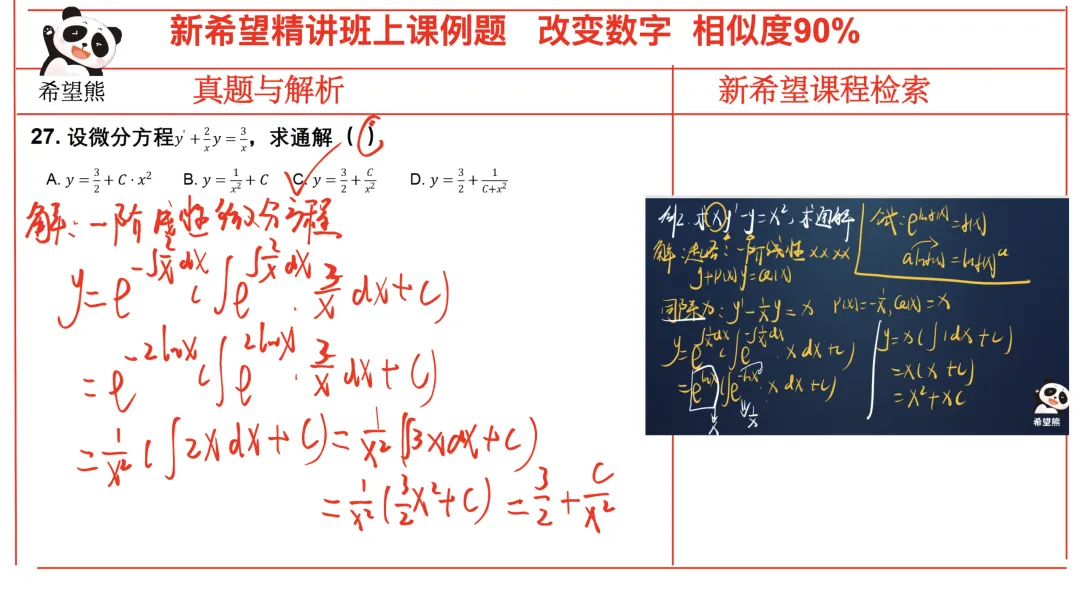 新希望精讲班上课例题 改变数字 相似度90%
希望熊
真题与解析
新希望课程检索
27. 设微分方程y' + 2/x y = 3/x，求通解（ ）,
A. y = 3/2 + C · x² B. y = 1/x² + C C. y = 3/2 + C/x² D. y = 3/2 + 1/(C+x²)
解：一阶线性微分方程
y = e^(-∫2/x dx) (∫e^(∫2/x dx) · 3/x dx + C)
= e^(-2lnx) (∫e^(2lnx) · 3/x dx + C)
= 1/x² (∫2x dx + C) = 1/x² (∫3x dx + C)
= 1/x² (3/2 x² + C) = 3/2 + C/x²
例2. 求xy' - y = x², 求通解
解：一阶线性 xxxx
y' + P(x)y = Q(x)
同除x：y' - 1/x y = x P(x) = -1/x, Q(x) = x
y = e^(∫1/x dx) (∫e^(-∫1/x dx) · x dx + C)
= e^(lnx) (∫e^(-lnx) · x dx + C)
x 1/x
e^(lnf(x)) = f(x)
a lnf(x) = lnf(x)^a
y = x(∫1dx + C)
= x(x + C)
= x² + xC
希望熊